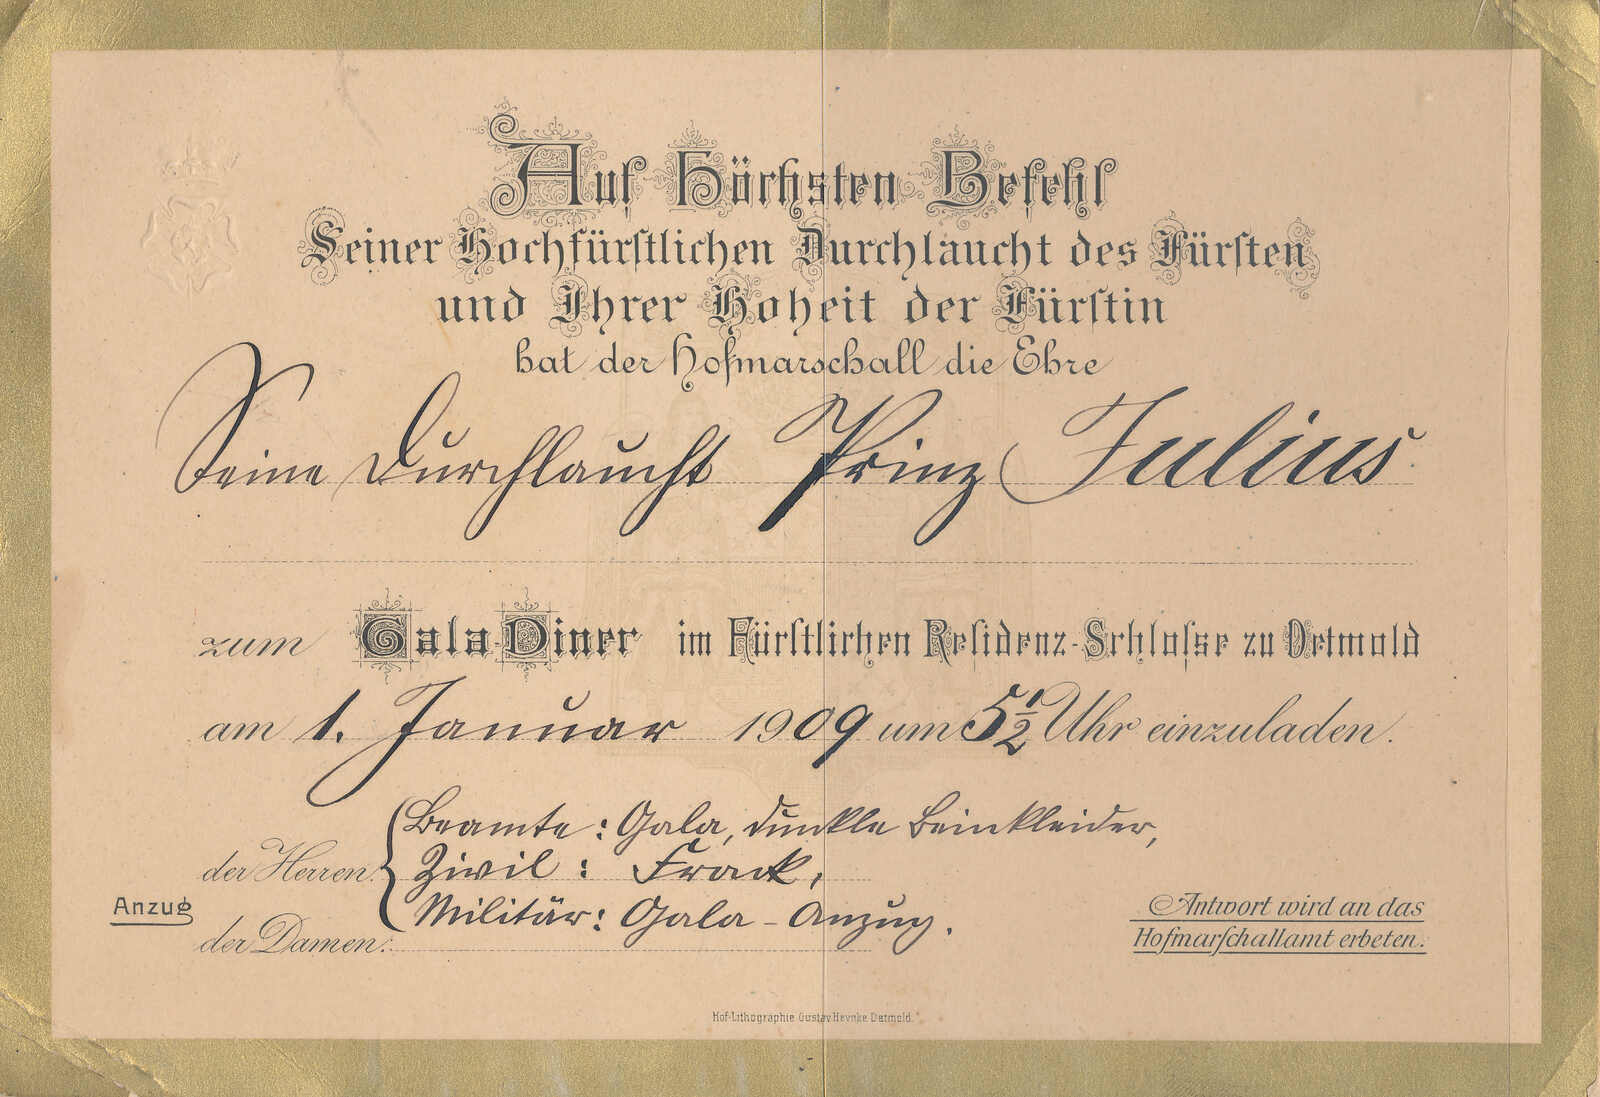 Auf Höchsten Befehl
Seiner Hochfürstlichen Durchlaucht des Fürsten
und Ihrer Hoheit der Fürstin
hat der Hofmarschall die Ehre
Seine Durchlaucht Prinz Julius
zum Gala-Diner im Fürstlichen Residenz-Schlosse zu Detmold
am 1. Januar 1909 um 5 1/2 Uhr einzuladen.
Beamte: Gala, dunkle Beinkleider,
der Herren: Zivil: Frack,
Anzug
Militär: Gala-Anzug.
der Damen:
Antwort wird an das
Hofmarschallamt erbeten.
Hof-Lithographie Gustav Heynke Detmold.